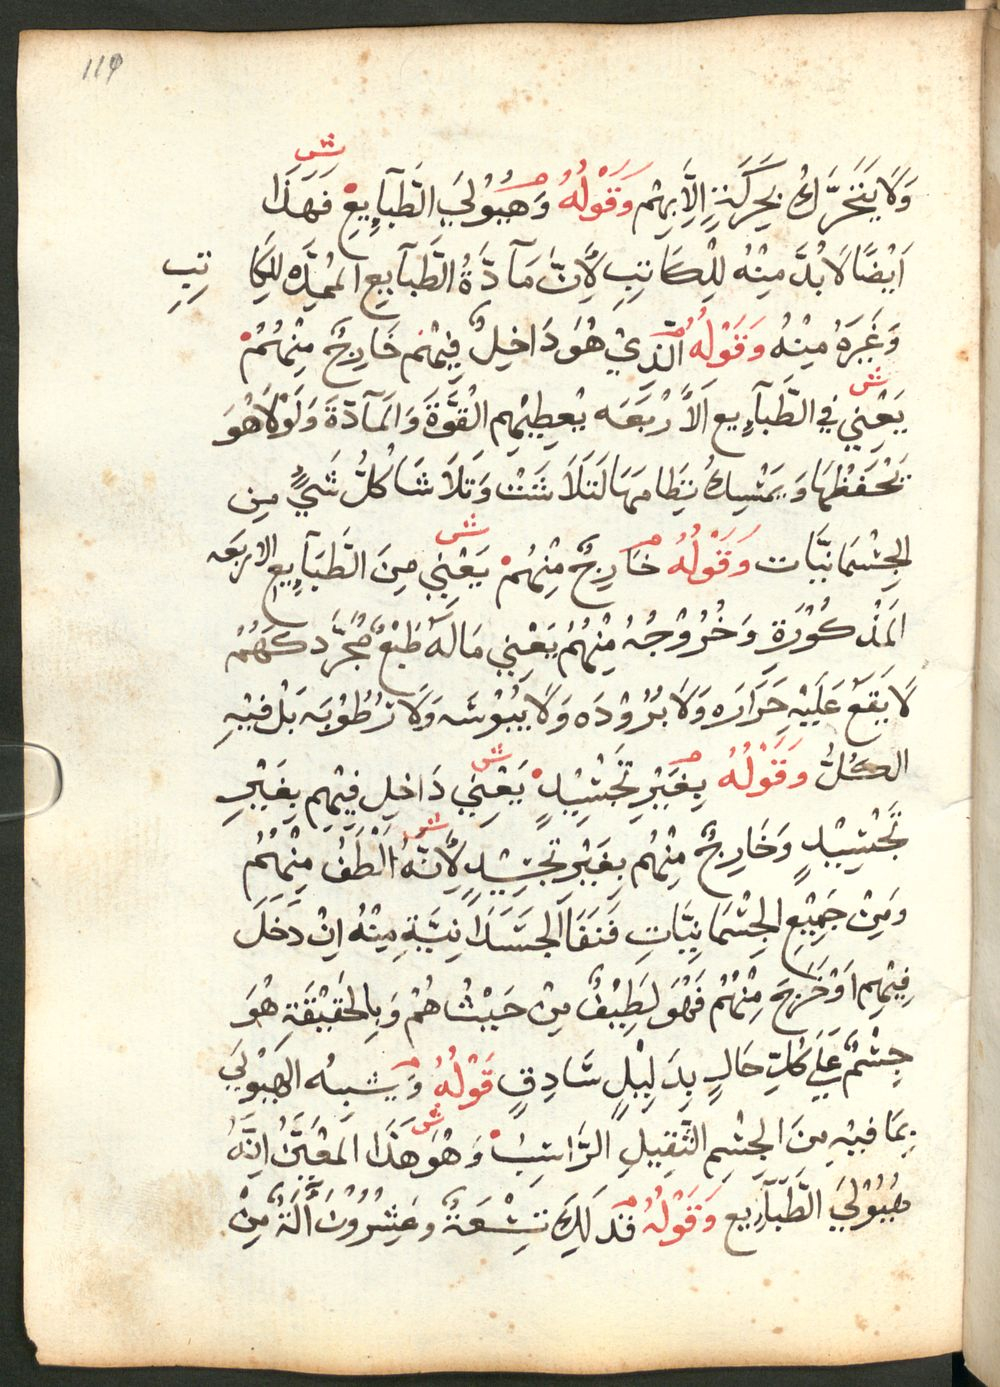 119
ش
وَلَا يَتَحَرَّكُ بِحَرَكَةِ اِلَّا بِهِمْ وَقَوْلُهُ وَهَيُوْلَي الطَّبَآيِعِ فَهَذَا
اَيْضًا لَابُدَّ مِنْهُ لِلْكَاتِبِ لِاَنَّ مَآدَّةُ الطَّبَآيِعِ المُمِدَّه لِلكَاتِبِ
وَغَيرَهُ مِنْهُ وَقَوْلُهُ الَّذِيْ هُوَ دَاخِلٌ فِيْهُمْ خَارِجٌ مِنْهُمْ
ش
يَعْنِي فِي الطَّبَآيِع اَلاَرْبَعَه يُعْطِيْهِم الْقُوَّةَ وَالمَآدَّةَ وَلَوْلَا هُوَ
يَحْفَظْهَا وَيَمْسِكُ نِظَامَهَا لَتَلَاشَتْ وَتَلَاشَا كُلُّ شَيٍ مِن
ش
الجِسْمَانِيَّات وَقَوْلُهُ خَارِجٌ مِنْهُمْ يَعْنِي مِنَ الطَّبَآيِع الاربعه
المَذْكُوْرَةِ وَخُرُوْجُهُ مِنْهُمُ يَعْنِي مَالَهُ طَبْعٌ مُجَرَّد كَهُمْ
لَا يَقَعْ عَلَيْهِ حَرَارَه وَلَا بُرُوْدَه وَلَا يُبُوْسَه وَلَا رُطُوْبَه بَلْ فِيْهِ
ش
الكُلُّ وَقَوْلُهُ بِغَيْرِ تَجْسِيْدٍ يَعْنِي دَاخِل فِيْهِم بِغَيْرِ
ش
تَجْسِيْدٍ وَخَارِجٌ مِنْهُم بِغَيْرِ تَجْسِيْدٍ لِاَنَّهُ اَلْطَفُ مِنْهُمُ
وَمِنْ جَمِيْعِ الجِسْمَانِيَّاتِ فَنَفَا الجَسَدَانِيَّةِ مِنْهُ اِنْ دَخَلَ
فِيْهِم اَوْ خَرَجَ مِنْهُمْ فَهْوَ لَطِيْفٌ مِنْ حَيْثُ هُمْ وَبِالحَقِيْقَةِ هُوَ
جِسْمٌ عَلَي كُلِّ حَالٍ بِدَلِيْلٍ سَّادِقٍ قَوْلُهُ وَيشبِه الهَيُوْلَي
ش
بِمَا فِيْهِ مِنَ الجِسْمِ الثَّقِيلِ الرَّاسِبْ وَهُوَ هَذَا المَعْنَيُ اِنَّهُ
هَيُوْلَيَ الطَّبَآيِع وَقَوْلُهُ فذَلِكَ تِسْعَةٌ وَعِشْرُوْنَ آلَةٌ مِنْ